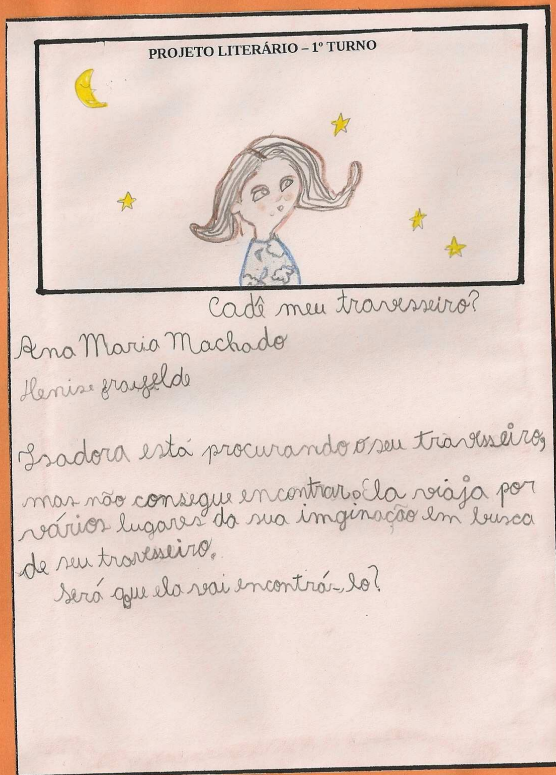 PROJETO LITERÁRIO – 1º TURNO
Cadê meu travesseiro?
Ana Maria Machado
Denise fraifelde
Isadora está procurando o seu travesseiro,
mas não consegue encontrar. Ela viaja por
vários lugares da sua imginação em busca
de seu travesseiro.
Será que ela vai encontrá-lo?